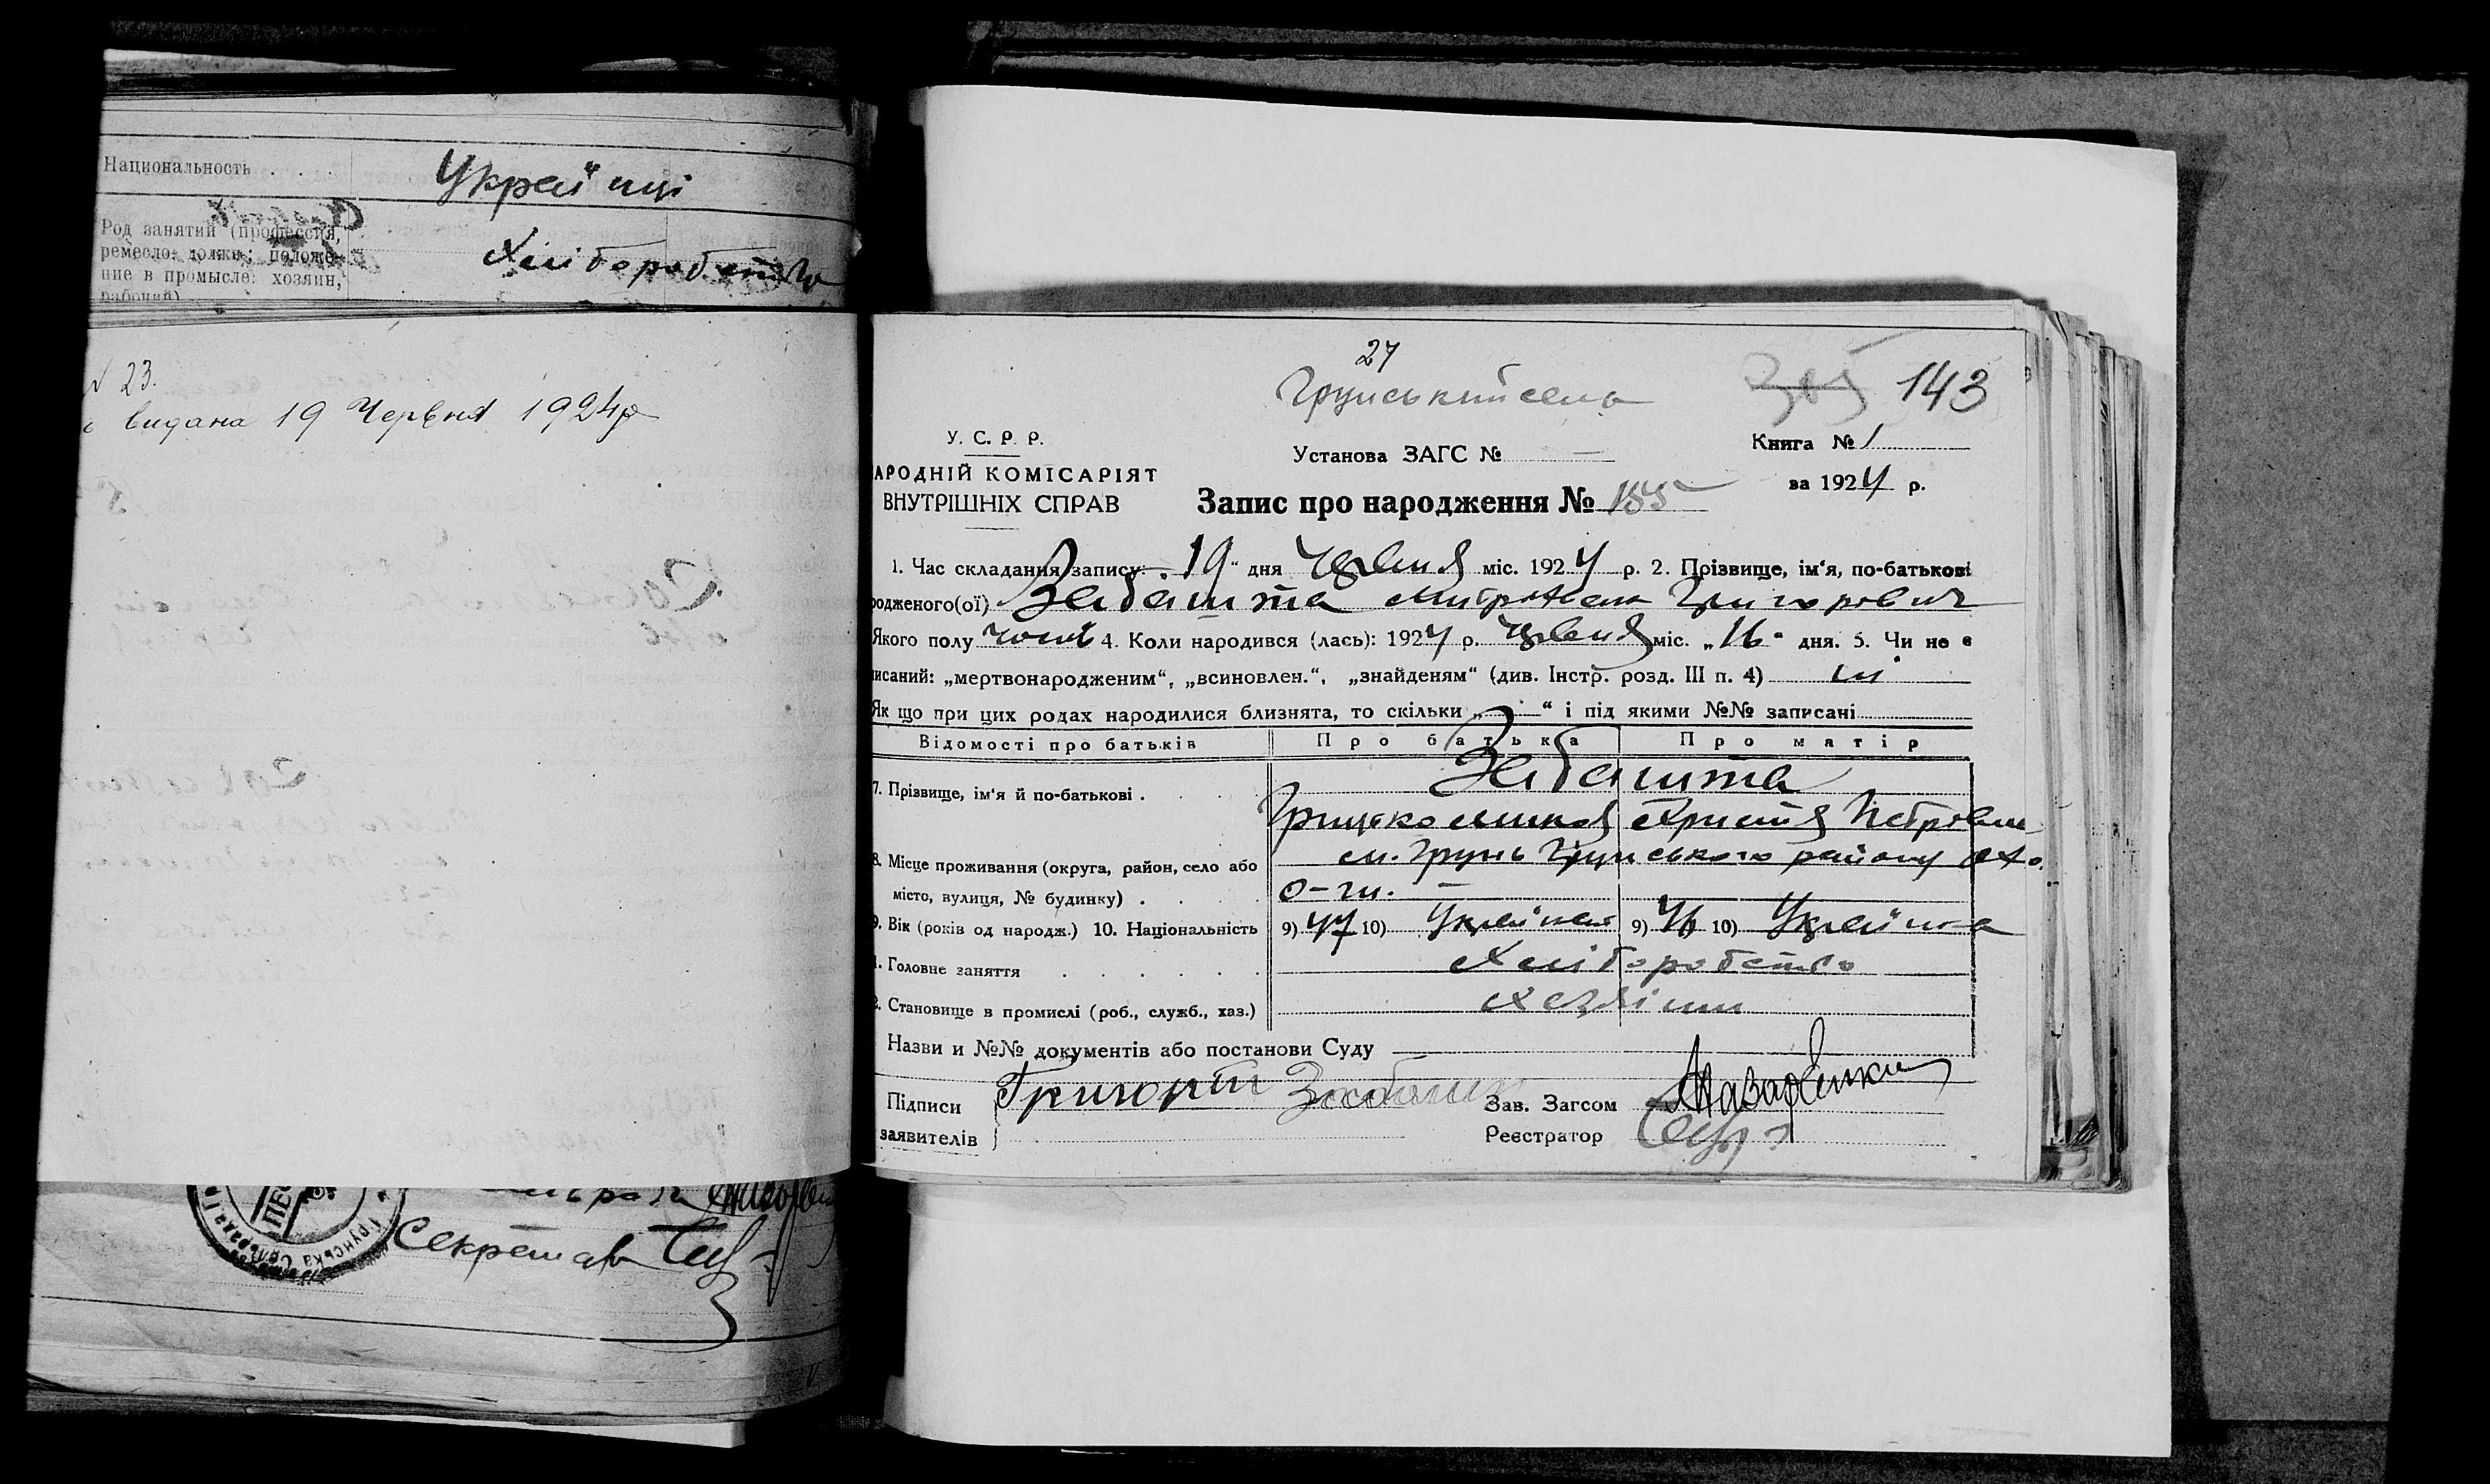 Национальность . . .
Українці
Род занятий (профессия,
ремесло: должн.; положе-
ние в промысле: хозяин,
рабочий)
Хліборобство
№ 23.
видана 19 Червня 1924 р
Грунська Сельрада
Секретарь
27
143
У. С. Р. Р.
АРОДНІЙ КОМІСАРІЯТ
ВНУТРІШНІХ СПРАВ
Установа ЗАГС № —
Книга № 1
за 1924 р.
Запис про народження № 155
1. Час складання запису: „19" дня Червня міс. 1924 р. 2. Прізвище, ім'я, по-батькові
родженого(ої) Забашта Митрофан Григорович
Якого полу чолов 4. Коли народився (лась): 1924 р. Червня міс. „16" дня. 5. Чи не є
писаний: „мертвонародженим", „всиновлен.", „знайденям" (див. Інстр. розд. III п. 4) ні
Як що при цих родах народилися близнята, то скільки „-" і під якими №№ записані
Відомості про батьків Про батька Про матір
7. Прізвище, ім'я й по-батькові .
Забашта
Грицько Христя Петровна
8. Місце проживання (округа, район, село або
місто, вулиця, № будинку) .
м. Грунь Грунського району
9. Вік (років од народж.) 10. Національність 9) 47 10) Українец 9) 46 10) Українка
1. Головне заняття . . . . . . Хліборобство
2. Становище в промислі (роб., служб., хаз.) Хазяіни
Назви и №№ документів або постанови Суду
Підписи
заявителів
Григорій Забашта
Зав. Загсом
Реєстратор